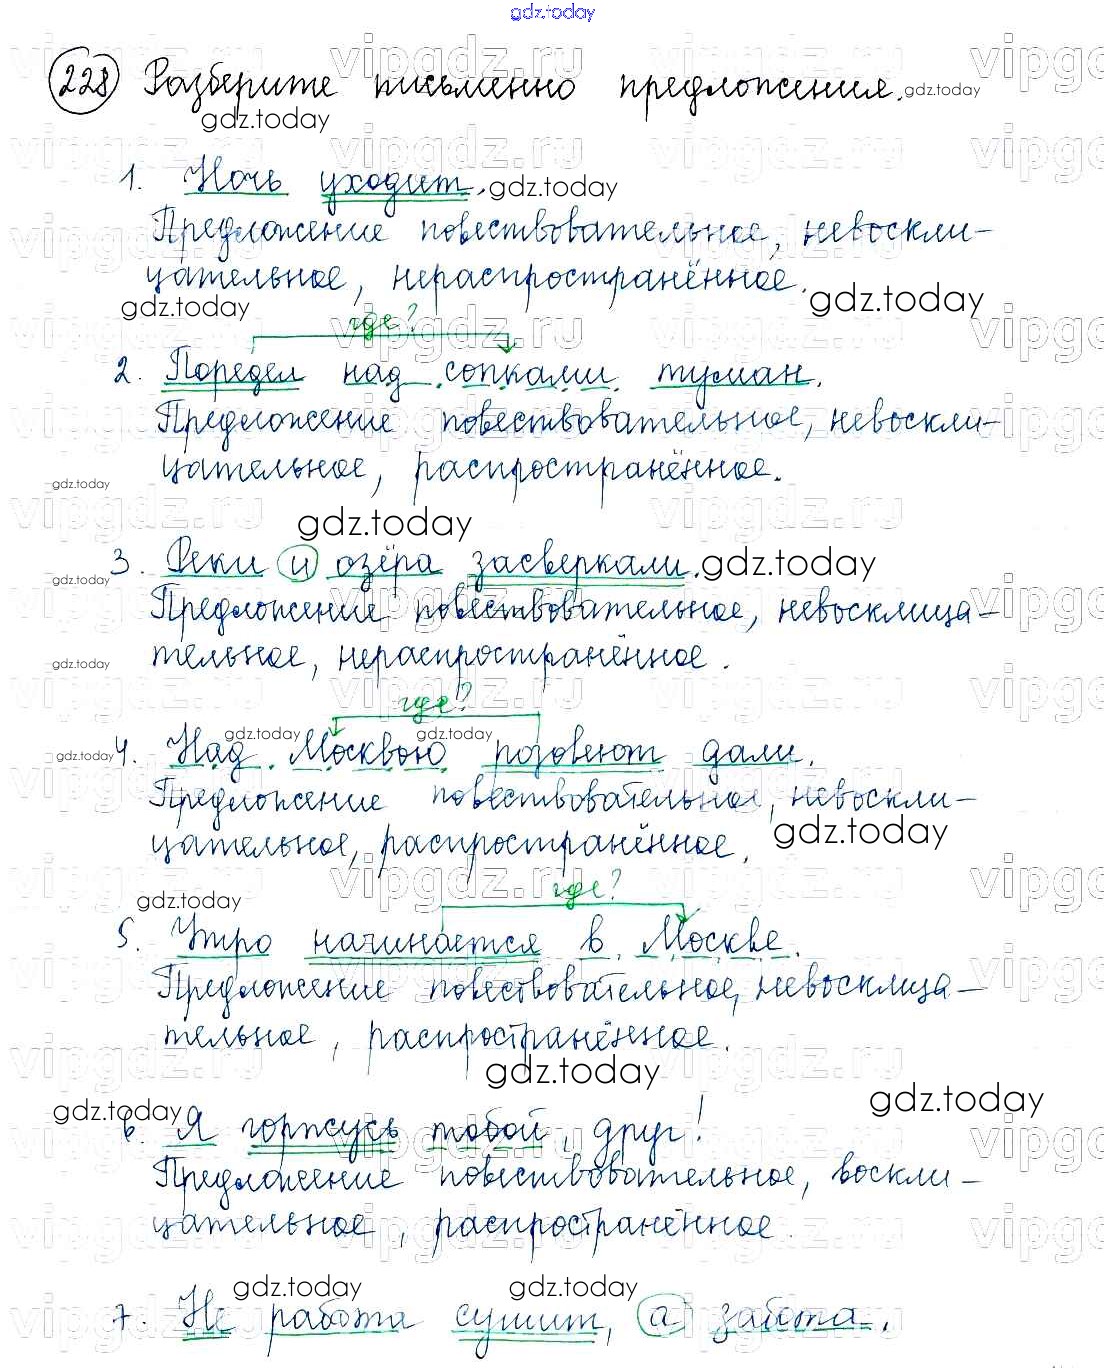 gdz.today
228 Разберите письменно предложения. gdz.today
gdz.today
1. Ночь уходит. gdz.today
Предложение повествовательное, невоскли-
цательное, нераспространённое.
gdz.today gdz.today
где?
2. Поредел над сопками туман.
Предложение повествовательное, невоскли-
цательное, распространённое.
gdz.today
gdz.today
3. Реки и озёра засверкали. gdz.today
gdz.today
Предложение повествовательное, невосклица-
тельное, нераспространённое.
gdz.today
где?
gdz.today gdz.today
gdz.today 4. Над Москвою розовеют дали.
Предложение повествовательное, невоскли-
цательное, распространённое.
gdz.today
где?
gdz.today
5. Утро начинается в Москве.
Предложение повествовательное, невосклица-
тельное, распространённое.
gdz.today
gdz.today gdz.today
6. Я горжусь тобой, друг!
Предложение повествовательное, воскли-
цательное, распространённое.
gdz.today gdz.today
7. Не работа сушит, а забота.
vipgdz.ru